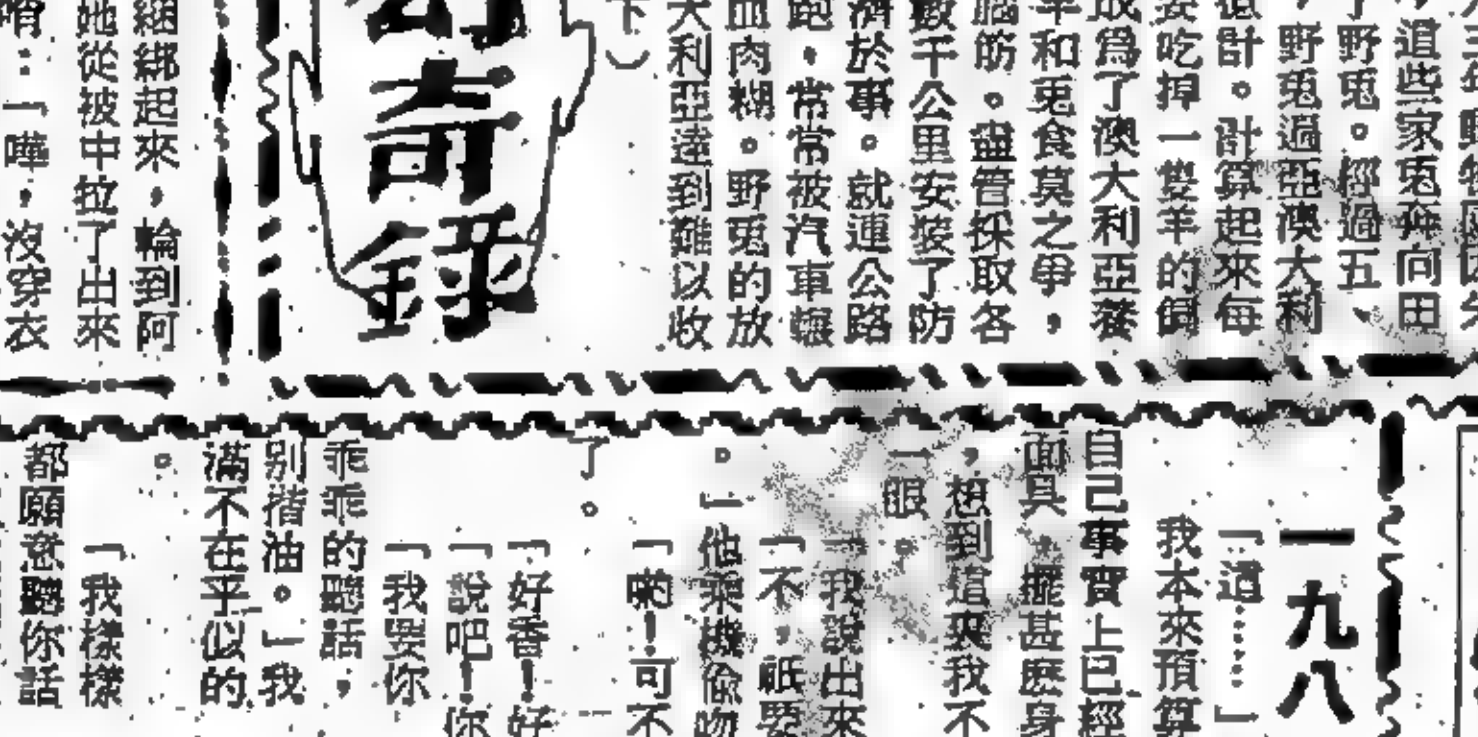 年動物園因失
，這些家兎奔向田
了野兎。經過五、
，野兎過亞澳大利
億計。計算起來每
要吃掉一雙羊的飼
成爲了澳大利亞養
羊和兎食莫之爭，
腦筋。盡管採取各
數千公里安裝了防
濟於事。就連公路
跑，常常被汽車輾
血肉糊。野兎的放
大利亞達到難以收
下）
奇錄
綑綁起來，輪到阿
她從被中拉了出來
：「嘩，沒穿衣
一九八
「這……」
我本來預算
自己事實上已經
面具，擺甚麽身
，想到這裏我不
一眼。
「我說出來
「不，祇要
。」他乘機偷吻
「喲！可不
了。
「好香！好
「說吧！你
「我要你
乖乖的聽話，
別揩油。」我
滿不在乎似的
。
「我樣樣
都願意聽你話